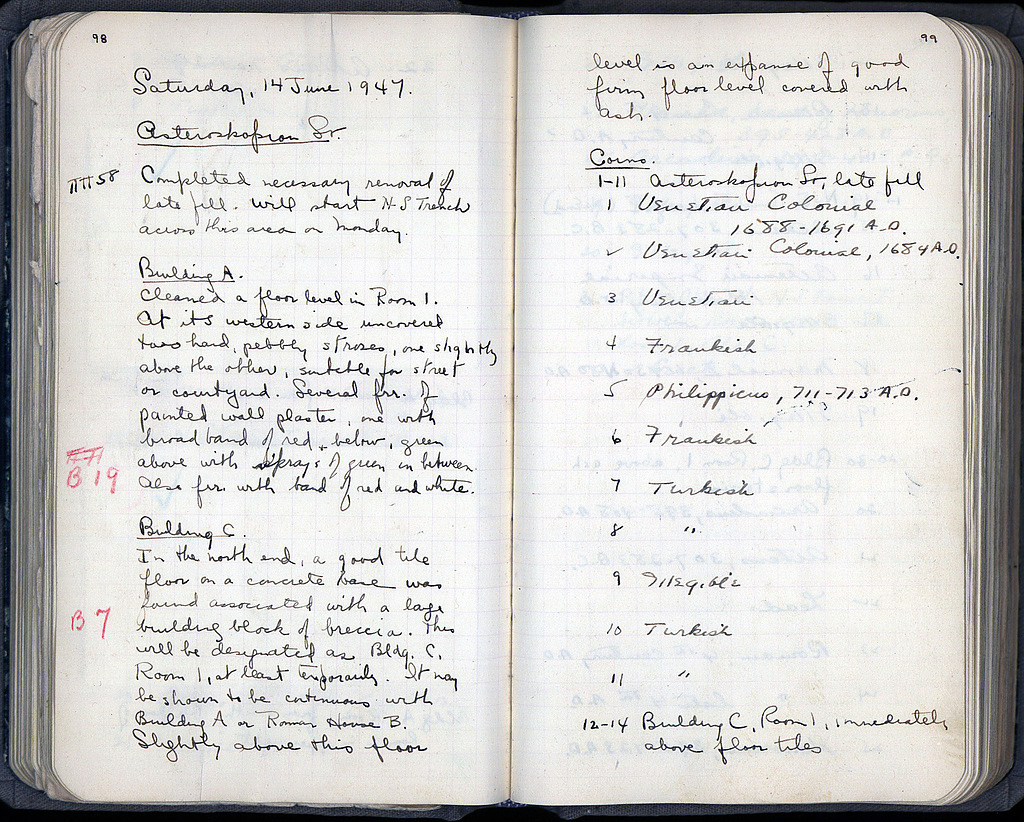 98
Saturday, 14 June 1947.
Asteroskopion Sr.
ΠΠ 58
Completed necessary removal of
late fill. Will start N-S Trench
across this area on Monday.
Building A.
Cleaned a floor level in Room 1.
At its western side uncovered
two hard, pebbly stroses, one slightly
above the other, suitable for street
or courtyard. Several frr. of
painted wall plaster, one with
broad band of red below, green
above with sprays of green in between.
Also frr. with band of red and white.
B 19
Building C.
In the north end, a good tile
floor on a concrete base was
found associated with a large
building block of breccia. This
will be designated as Bldg. C,
Room 1, at least temporarily. It may
be shown to be continuous with
Building A or Roman House B.
Slightly above this floor
B 7
99
level is an expanse of good
firm floor level covered with
ash.
Coins.
1-11 Asteroskopion Sr, late fill
1 Venetian Colonial
1688-1691 A.D.
2 Venetian Colonial, 1689 A.D.
3 Venetian
4 Frankish
5 Philippicus, 711-713 A.D.
6 Frankish
7 Turkish
8 "
9 Illegible
10 Turkish
11 "
12-14 Building C, Room 1, immediately
above floor tiles